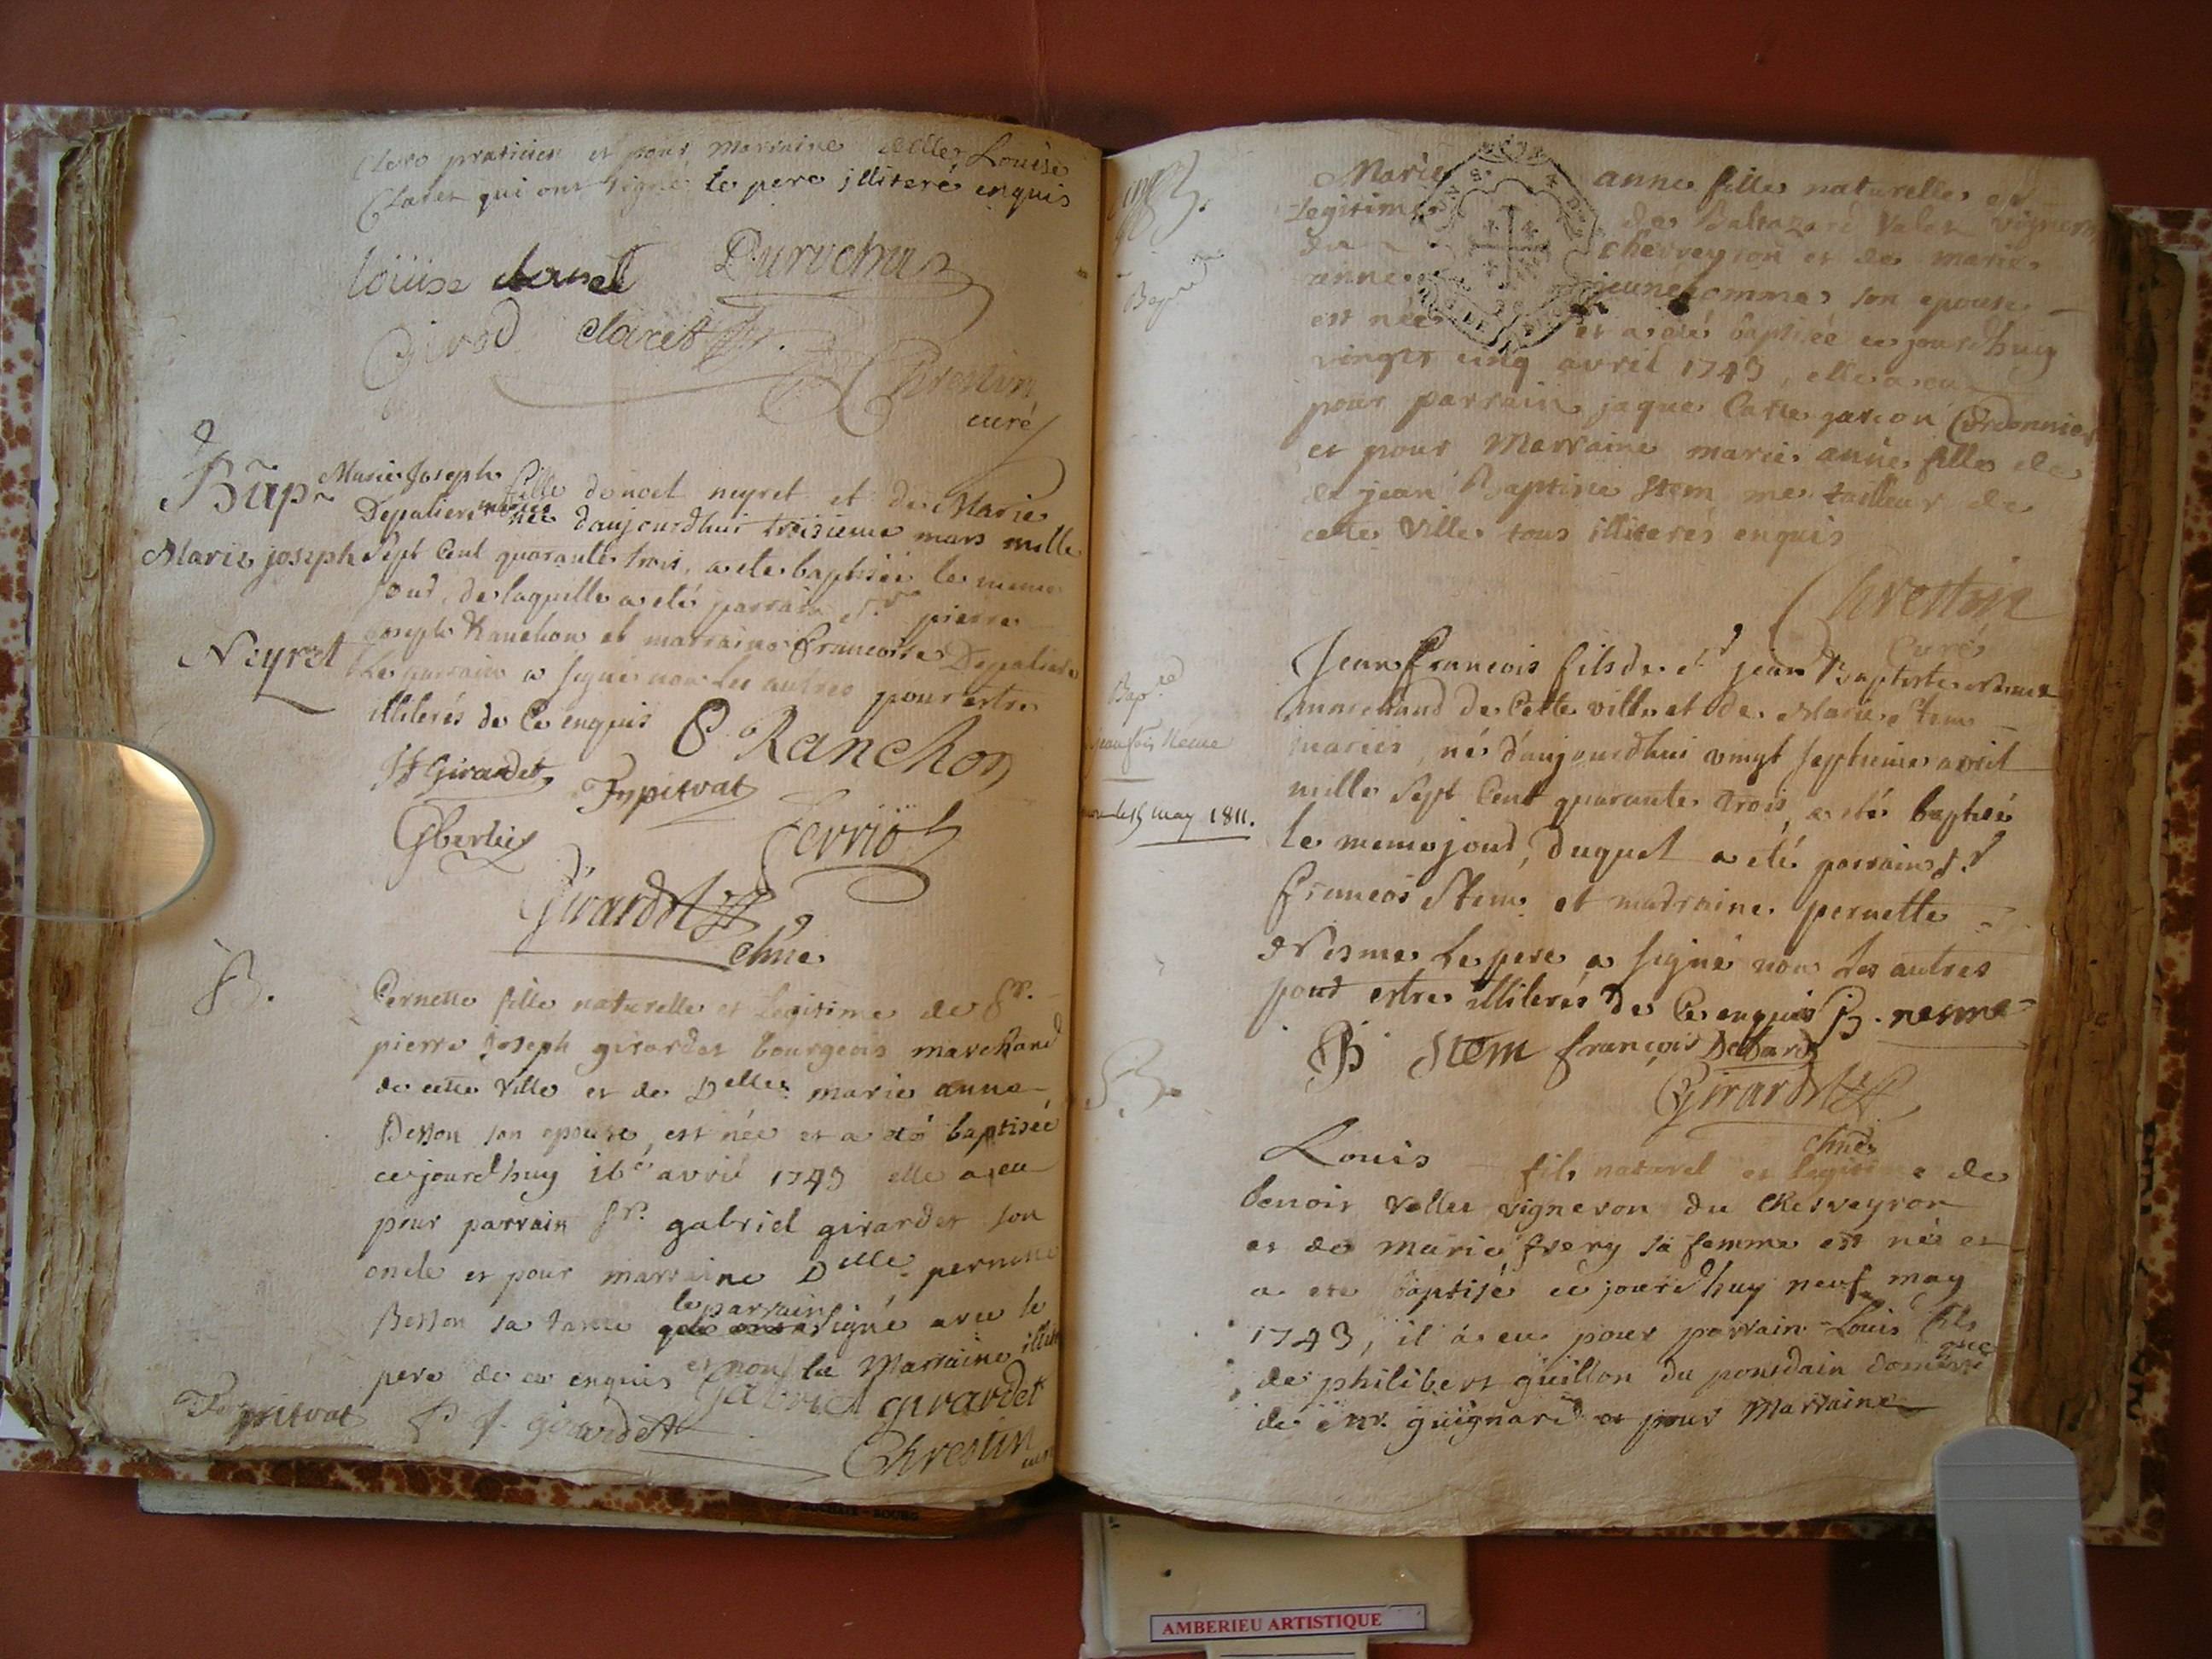 Clerc praticien et pour marraine delle Louise
Claret qui ont signé le pere illiteré enquis
loüise claret
girod claret
Chrestin
curé
Bap
Marie joseph
Neyret
Marie Joseph fille donoel neyret et de Marie
Depaliere mariés née daujourdhui troisieme mars mille
Sept Cent quarante trois, a ete baptisée le meme
jour, de laquelle a eté parrain sr pierre
joseph Ranchon et marraine francoise Depaliere
Le parrain a signé non les autres pour estre
illiterés de Ce enquis P Ranchon
J F Girardet Fr pitrat
Girardet
B.
Pernette fille naturelle et Legitime de Sr.
pierre joseph girardet bourgeois marchand
de cette ville et de Delle marie anne
Besson son epouse, est née et a eté baptisée
cejourdhuy 16e avril 1743 elle a eu
pour parrain sr. gabriel girardet son
oncle et pour marraine Delle pernette
Besson sa tante le parrain signé avec le
pere de ce enquis et non la Marraine
gabriel girardet
Fr pitrat P J girardet
Chrestin
Marie anne fille naturelle et
Legitime de Baltazard Valet vigneron
du chesveyron et de marie
anne jeunehomme son epouse
est née et a eté baptisée ce jourdhuy
vingt cinq avril 1743, elle a eu
pour parrain jaque Carre garcon Cordonnier
et pour Marraine marie anne fille de
de jean Baptiste Stem me tailleur de
cette Ville tous illiterés enquis
Chrestin
Curé
Jean francois fils de sr jean Baptiste nesme
marchand de Cette ville et de Marie Stem
mariés, né daujourdhui vingt septieme avril
mille Sept Cent quarante trois, a eté baptisé
le meme jour, duquel a eté parrain sr
francois Stem et marraine pernette
Nesme Le pere a signé non Les autres
pour estre illiterés de Ce enquis B. nesme
B Stem françois
Girardet
Bap
jean fois Nesme
15 may 1811.
B.
Louis fils naturel et legitime de
benoit Vallet vigneron du Chesveyron
et de marie frery sa femme est né et
a ete baptisé ce jourdhuy neuf may
1743, il a eu pour parrain Louis fils
de philibert guillon du pontdain domestique
de mr. guignard et pour Marraine
AMBERIEU ARTISTIQUE